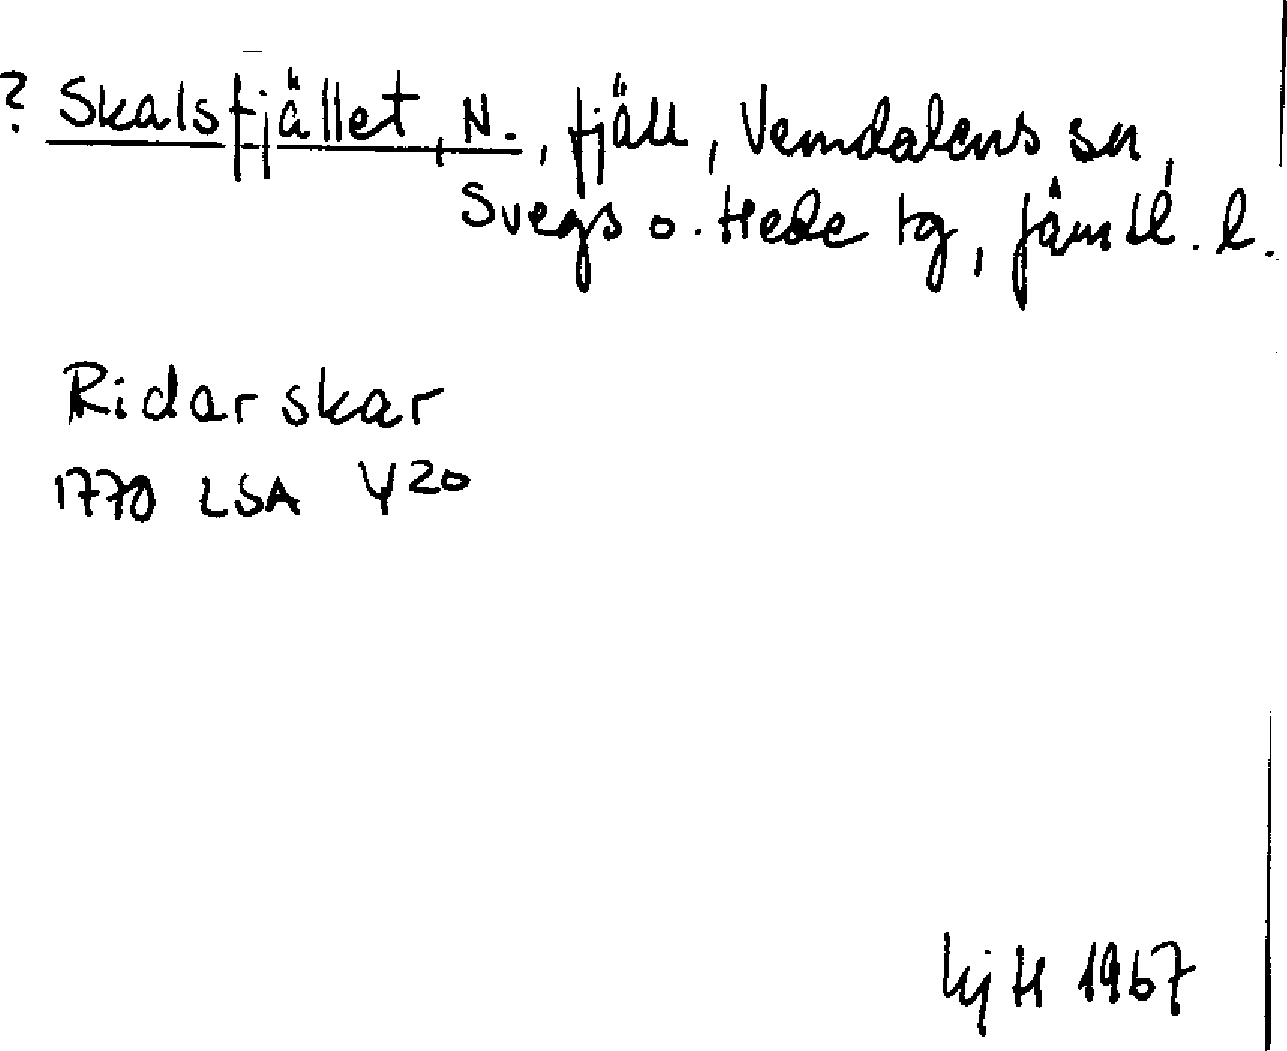 ? Skalsfjället, N., fjäll, Vemdalens sn,
Svegs o. Hede tg, Jämtl. l.
Ridarskar
1770 LSA Y20
LjH 1967